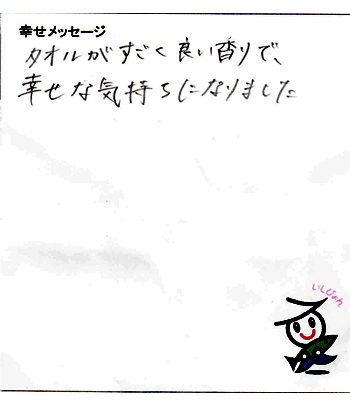 幸せメッセージ
タオルがすごく良い香りで、
幸せな気持ちになりました。